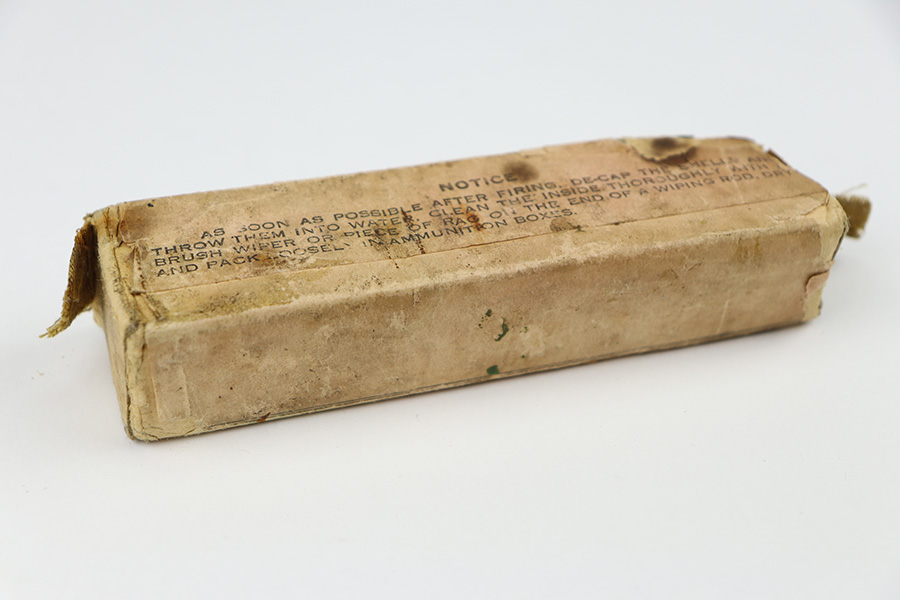 NOTICE
AS SOON AS POSSIBLE AFTER FIRING, DE-CAP THE SHELLS AND
THROW THEM INTO WATER. CLEAN THE INSIDE THOROUGHLY WITH
BRUSH WIPER OR PIECE OF RAG ON THE END OF A WIPING ROD. DRY
AND PACK LOOSELY IN AMMUNITION BOXES.